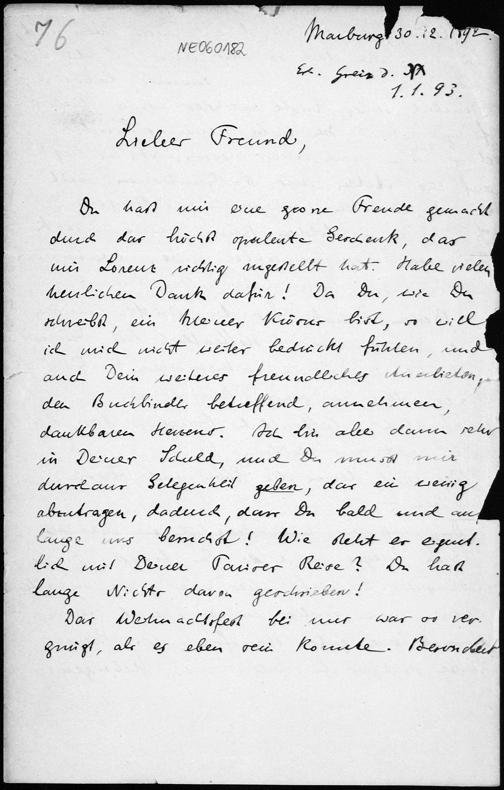 76
NE060182
Marburg 30.12.1892.
1.1.93.
Lieber Freund,
Du hast mir eine grosse Freude gemacht
durch das höchst opulente Geschenk, das
mir Lorenz richtig zugestellt hat. Habe vielen
herzlichen Dank dafür! Da Du, wie Du
schreibst, ein kleiner Krösus bist, so will
ich mich nicht weiter bedrückt fühlen, und
auch Dein weiteres freundliches Anerbieten,
den Buchbinder betreffend, annehmen,
dankbaren Herzens. Ich bin aber dann sehr
in Deiner Schuld, und Du musst mir
durchaus Gelegenheit geben, das ein wenig
abzutragen, dadurch, dass Du bald und auf
lange uns besuchst! Wie steht es eigent-
lich mit Deiner Reise? Du hast
lange Nichts davon geschrieben!
Das Weihnachtsfest bei mir war so ver-
gnügt, als es eben sein konnte. Besonders